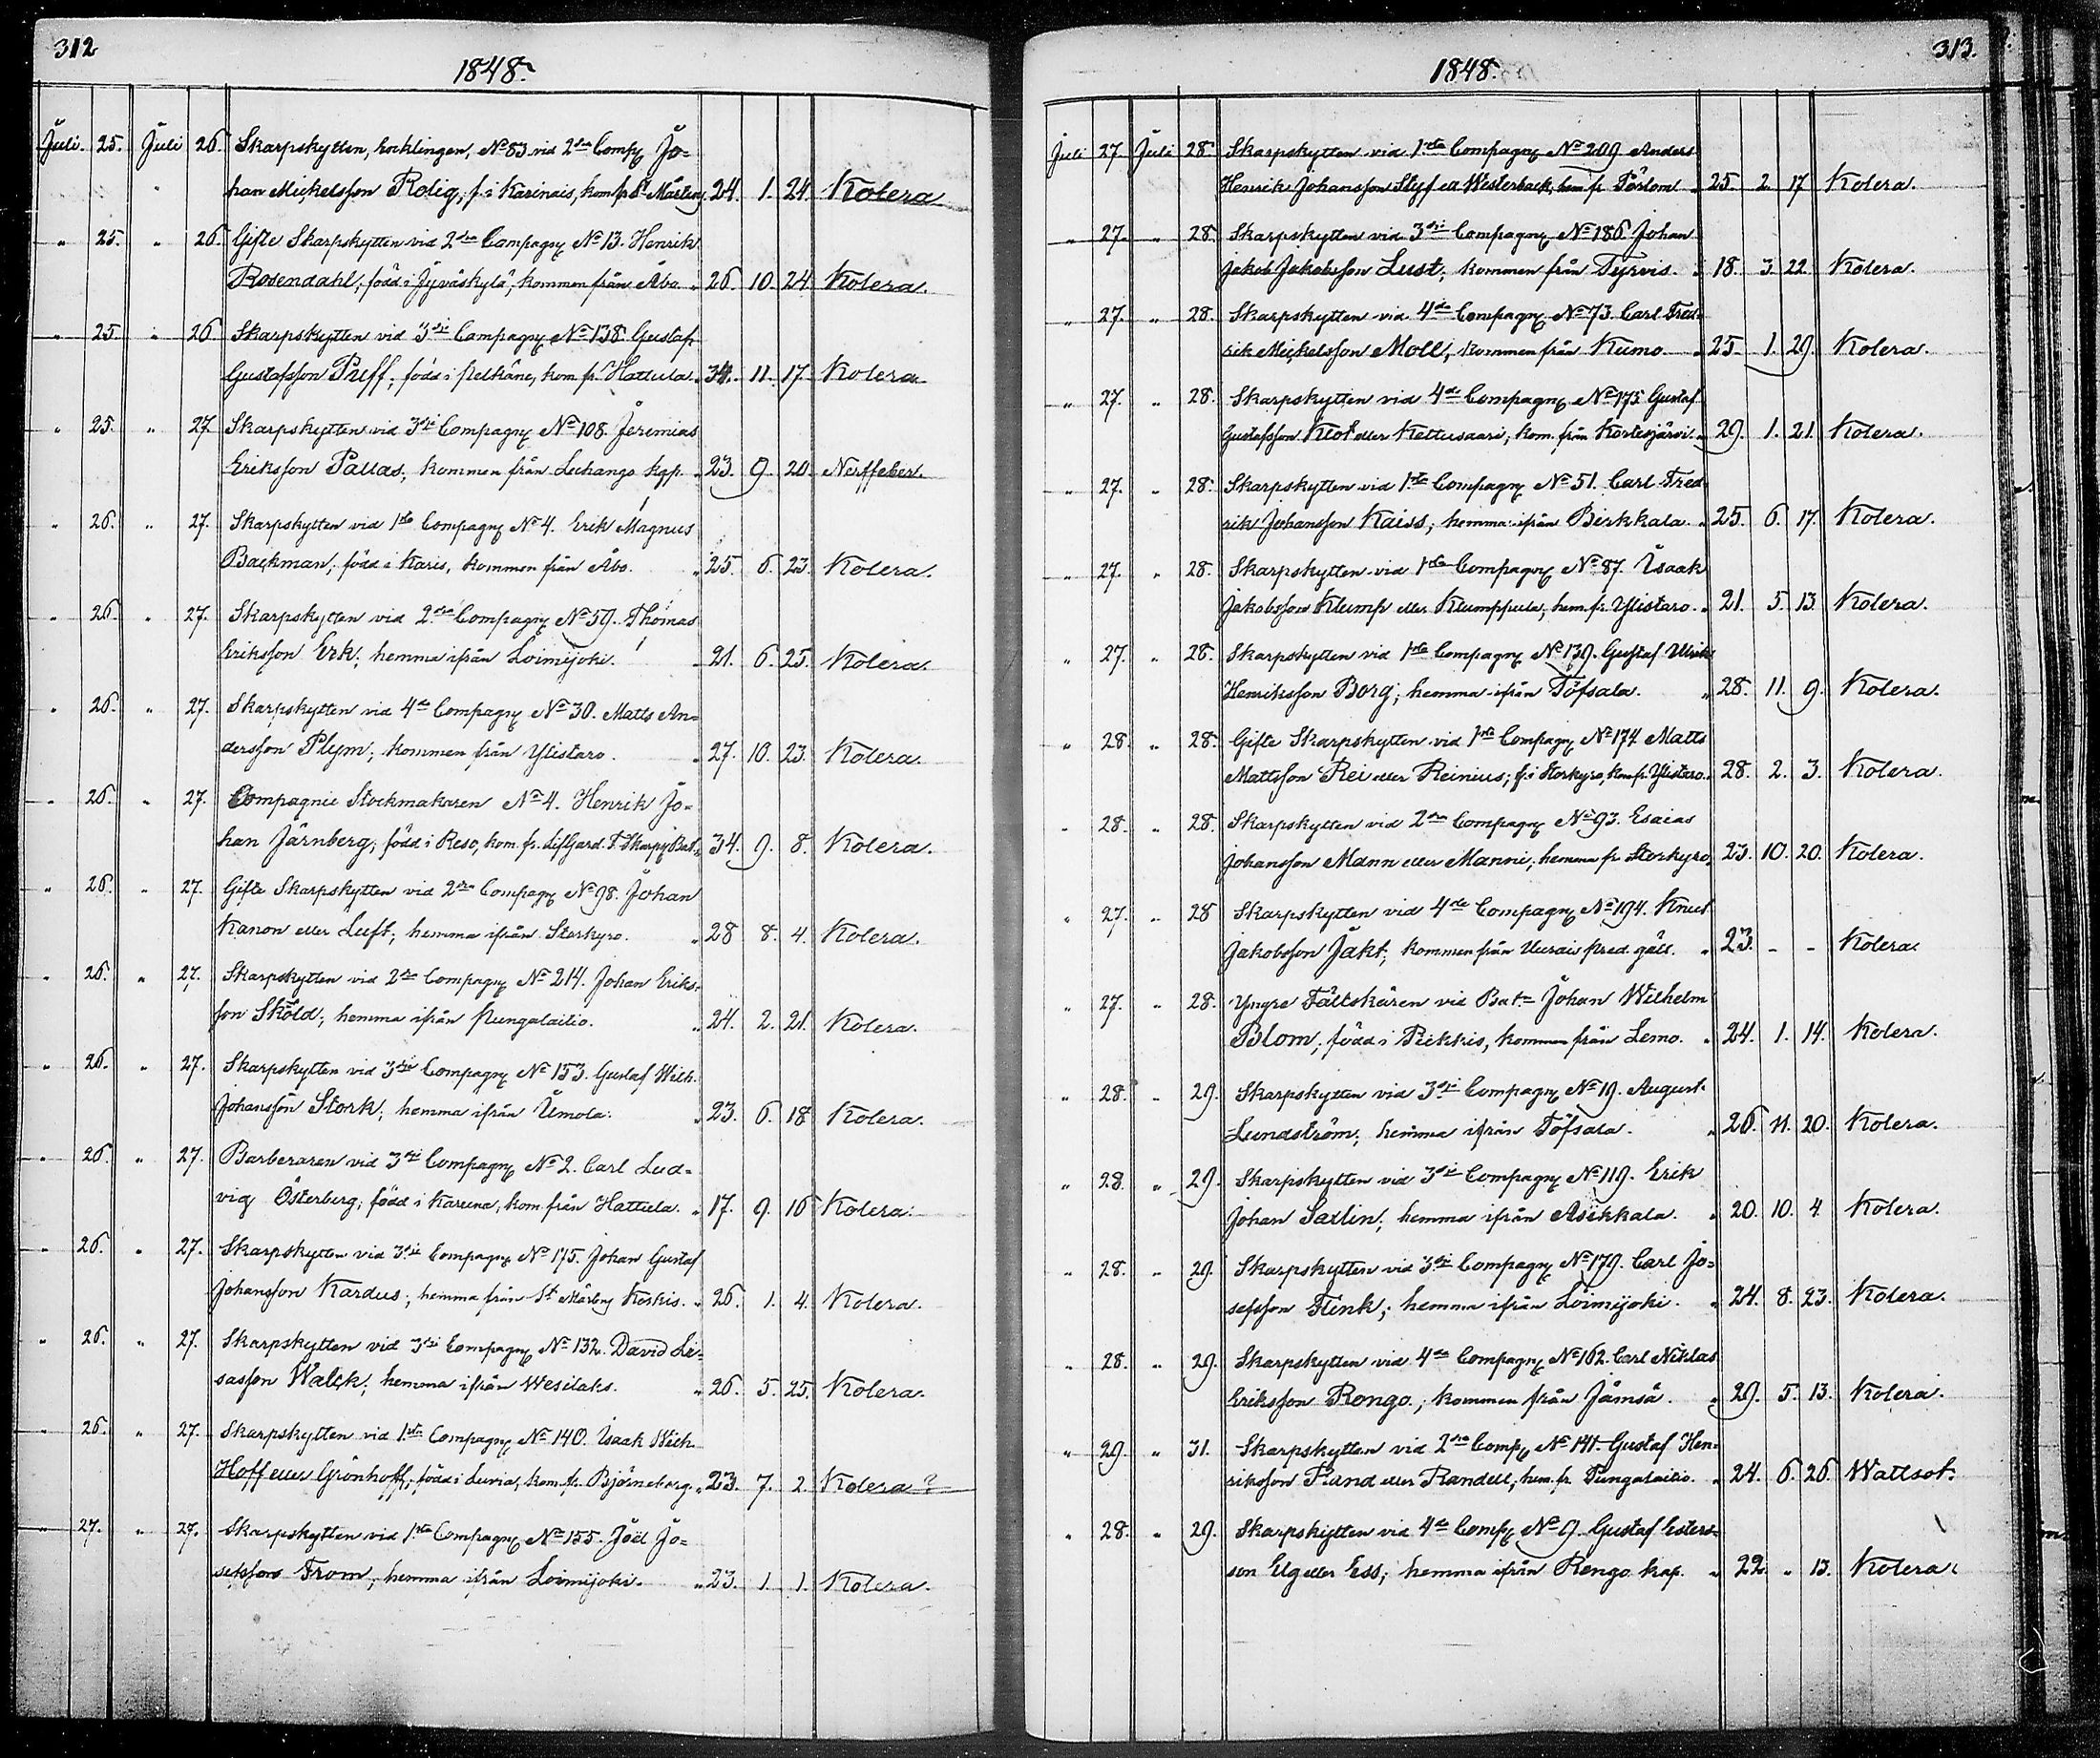 312
1848.
Juli. 25. Juli 26. Skarpskytten, kocklingen, No 83 vid 2dra Compy Jo-
han Mickelsson Rolig, f. i Karinais, kom fr. St Mårtens 24. 1. 24. Kolera
" 25. " 26. Gifte Skarpskytten vid 2dra Compagny No 13. Henrik
Rosendahl; född i Jyväskylä, kommen från Åbo " 26. 10. 24. Kolera.
" 25. " 26. Skarpskytten vid 3die Compagny No 138. Gustaf
Gustafsson Puff, född i Pelkäne, kom fr. Hattula. 34. 11. 17. Kolera
" 25. " 27. Skarpskytten vid 3die Compagny No 108. Jeremias
Eriksson Pallas, kommen från Lechango kgp. 23. 9. 20. Nerffeber.
" 26. " 27. Skarpskytten vid 1sta Compagny No 4. Erik Magnus
Backman, född i Karis, kommen från Åbo. " 25. 6. 23. Kolera.
" 26. " 27. Skarpskytten vid 2dra Compagny No 59. Thomas
Eriksson Erk; hemma ifrån Loimijoki. 21. 6. 25. Kolera.
" 26. " 27. Skarpskytten vid 4de Compagny No 30. Matts An-
dersson Plym; kommen från Ylistaro. " 27. 10. 23. Kolera.
" 26. " 27. Compagnie Stockmakaren No 4. Henrik Jo-
han Järnberg; född i Reso, kom. fr. LifGard. F. Skarpsk Bat. " 34. 9. 8. Kolera.
" 26. " 27. Gifte Skarpskytten vid 2dra Compagny No 98. Johan
Kanon eller Luft; hemma ifrån Storkyro. " 28 8. 4. Kolera.
" 26. " 27. Skarpskytten vid 2dra Compagny No 214. Johan Eriks-
son Sköld; hemma ifrån Pungalaitio. " 24. 2. 21. Kolera.
" 26. " 27. Skarpskytten vid 3die Compagny No 153. Gustaf Wilh.
Johansson Stork; hemma ifrån Urnola. " 23. 6. 18. Kolera.
" 26. " 27. Barberaren vid 3die Compagny No 2. Carl Lud-
vig Österberg; född i Karuna, kom. från Hattula. " 17. 9. 16 Kolera.
" 26. " 27. Skarpskytten vid 3die Compagny No 175. Johan Gustaf
Johansson Kardus; hemma från St Mårtens Koskis. " 26. 1. 4. Kolera.
" 26. " 27. Skarpskytten vid 3die Compagny No 132. David Le-
sasson Walck; hemma ifrån Wesilaks. " 26. 5. 25. Kolera.
" 26. " 27. Skarpskytten vid 1sta Compagny No 140. Isaak Wilh.
Hoff eller Grönhoff; född i Luvia, kom. fr. Björneborg. " 23. 7. 2. Kolera?
" 27. " 27. Skarpskytten vid 1sta Compagny No 155. Joel Jo-
sefsson From; hemma ifrån Loimijoki. " 23. 1. 1. Kolera.
313.
1848.
Juli 27. Juli 28. Skarpskytten vid 1sta Compagny No 209 Anders
Henrik Johansson Styf ell. Westerback, hem. fr. " 25 2. 17 Kolera.
" 27. " 28. Skarpskytten vid 3die Compagny No 186 Johan
Jakob Jakobsson Lust, kommen från Tyrvis. " 18. 3. 22. Kolera.
" 27. " 28. Skarpskytten vid 4de Compagny No 73. Carl Fred-
rik Mickelsson Moll, kommen från Kumo. " 25. 1. 29. Kolera.
" 27. " 28. Skarpskytten vid 4de Compagny No 175 Gustaf
Gustafsson Klot eller Kettusaari; kom. från Kortesjärvi. " 29. 1. 21. Kolera.
" 27. " 28. Skarpskytten vid 1sta Compagny No 51. Carl Fred-
rik Johansson Kaiss; hemma ifrån Birkkala. " 25. 6. 17. Kolera.
" 27. " 28. Skarpskytten vid 1sta Compagny No 87. Isaak
Jakobsson Klump eller Klumppula; hem. fr. Ylistaro. " 21. 5. 13. Kolera.
" 27. " 28. Skarpskytten vid 1sta Compagny No 139. Gustaf Ulrik
Henriksson Borg; hemma ifrån Töfsala. " 28. 11. 9. Kolera.
" 28. " 28. Gifte Skarpskytten vid 1sta Compagny No 174 Matts
Mattsson Rei eller Reinius; f. i Storkyro, kom fr. Ylistaro. 28. 2. 3. Kolera.
" 28. " 28. Skarpskytten vid 2dra Compagny No 93. Esaias
Johansson Mann eller Manni; hemma fr Storkyro, 23. 10. 20. Kolera.
" 27. " 28 Skarpskytten vid 4de Compagny No 194. Knut
Jakobsson Jakt; kommen från Uurais pred. gäll. " 23. - - Kolera
" 27. " 28. Yngre Fältskären vid Bat:n Johan Wilhelm
Blom; född i Piekkis, kommen från Lemo. " 24. 1. 14. Kolera.
" 28. " 29. Skarpskytten vid 3die Compagny No 19. August
Lundström; hemma ifrån Töfsala. " 26. 11. 20. Kolera.
" 28. " 29. Skarpskytten vid 3die Compagny No 119. Erik
Johan Saxlin; hemma ifrån Asikkala. " 20. 10. 4. Kolera.
" 28. " 29. Skarpskytten vid 3die Compagny No 179. Carl Jo-
sefsson Flink; hemma ifrån Loimijoki. " 24. 8. 23. Kolera.
" 28. " 29. Skarpskytten vid 4de Compagny No 162. Carl Niklas
Eriksson Rongo; kommen från Jämsä. " 29. 5. 13. Kolera.
" 29. " 31. Skarpskytten vid 2dra Compy No 141. Gustaf Hen-
riksson Rand eller Randell, hem. fr. Pungalaitio. " 24. 6. 26. Wattsot.
" 28. " 29. Skarpskytten vid 4de Compy No 9. Gustaf Esters-
son Elg eller Ess; hemma ifrån Rengo kap. " 22. " 13. Kolera.